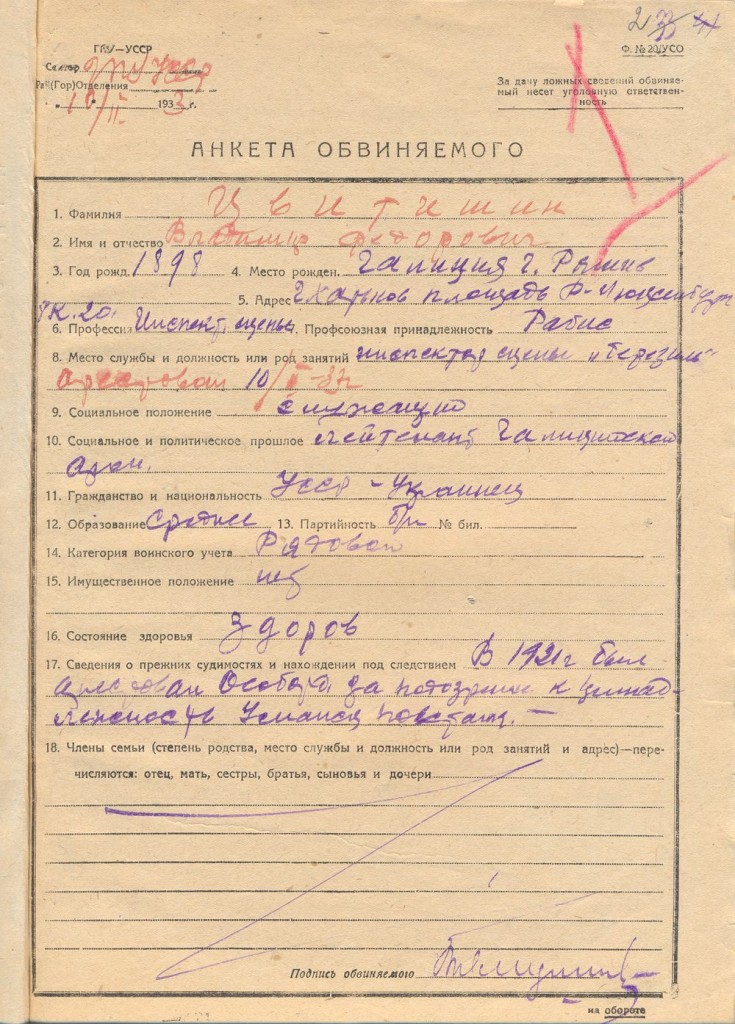 2
ГПУ—УССР
Ф. № 20/УСО
Сектор ГПУ УССР
Рай(Гор)Отделения
За дачу ложных сведений обвиняе-
мый несет уголовную ответствен-
ность
"10/II" 1933 г.
АНКЕТА ОБВИНЯЕМОГО
1. Фамилия Цвитишин
2. Имя и отчество Владимир Федорович
3. Год рожд. 1898 4. Место рожден. Галиция г.
5. Адрес г Харьков площадь Р-Люксембург
кк. 20.
6. Професси Инспект. сцены. Профсоюзная принадлежность Рабис
8. Место службы и должность или род занятий инспектор сцены „Березиль"
Арестован 10/II-33г
9. Социальное положение служащий
10. Социальное и политическое прошлое лейтенант Галицийской
арм.
11. Гражданство и национальность УССР - Украинец
12. Образование среднее 13. Партийность б/п № бил.
14. Категория воинского учета Рядовой
15. Имущественное положение нет
16. Состояние здоровья здоров
17. Сведения о прежних судимостях и нахождении под следствием В 1921 г был
арестован за подозрение к принад-
лежность повстанц. —
18. Члены семьи (степень родства, место службы и должность или род занятий и адрес)—пере-
числяются: отец, мать, сестры, братья, сыновья и дочери
Подпись обвиняемого
на обороте